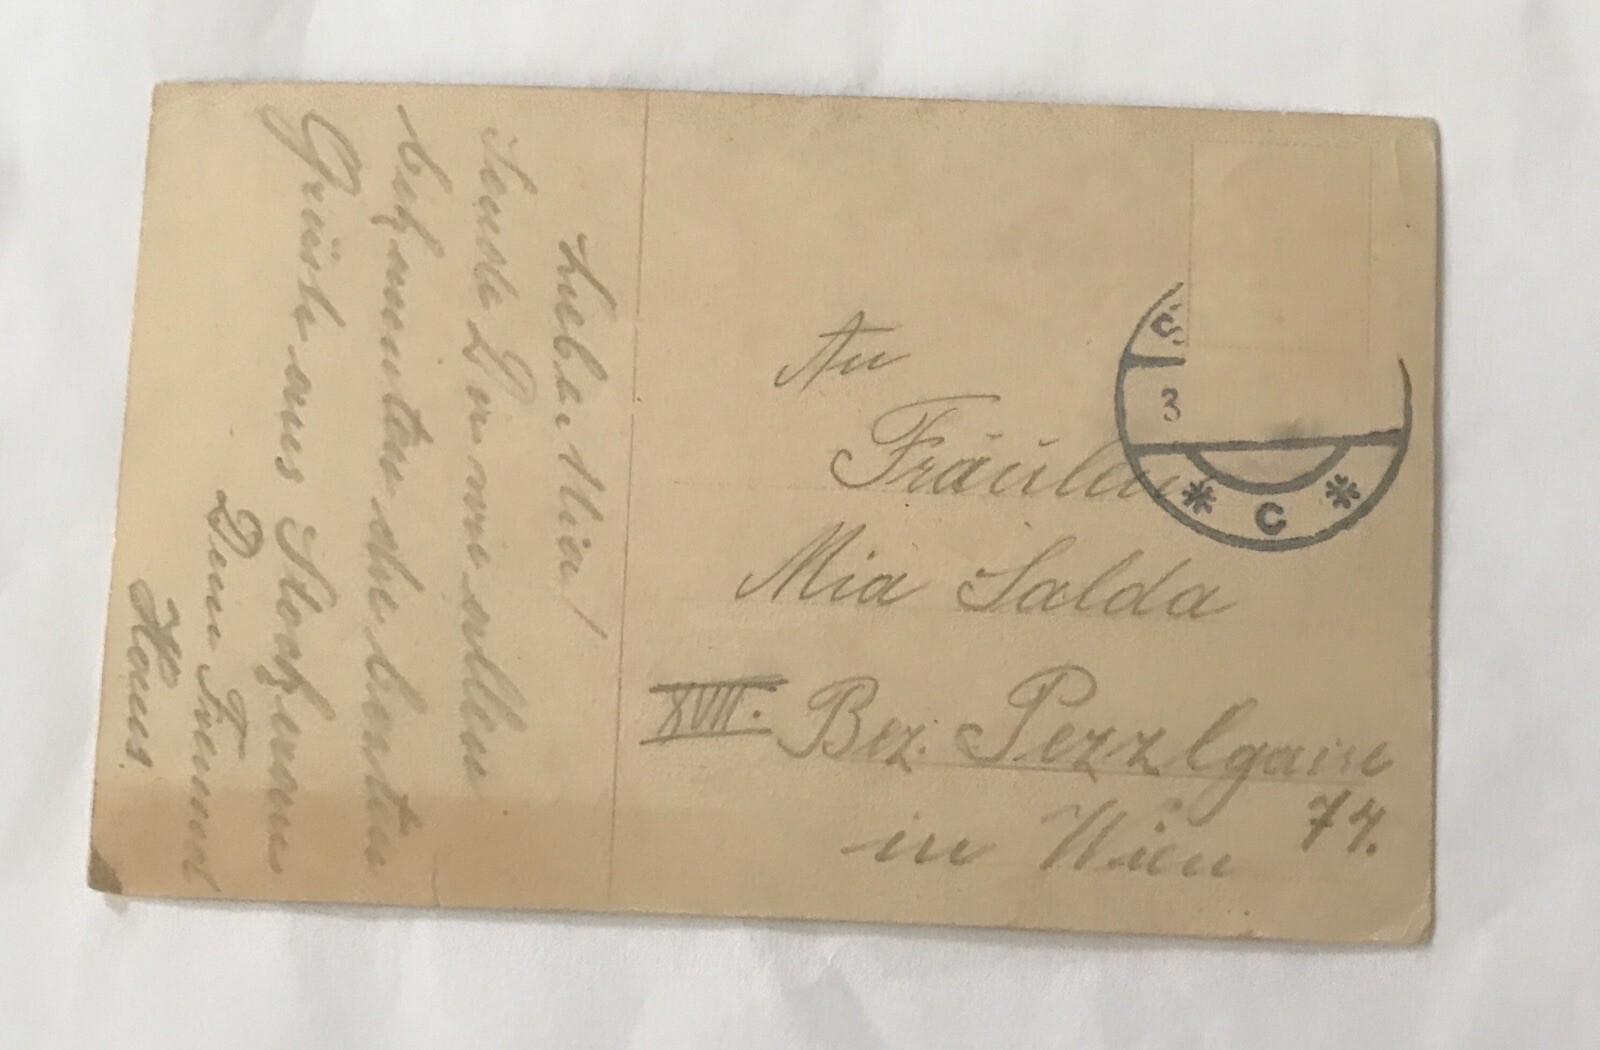 Liebe Mia!
Sende Dir wie allen
Bekannten die besten
Grüße aus Stockerau
Dein Freund
Hans.
An
Fräulein
Mia Salda
XVIII. Bez. Pezzlgasse
74.
in Wien
S
3
* C *